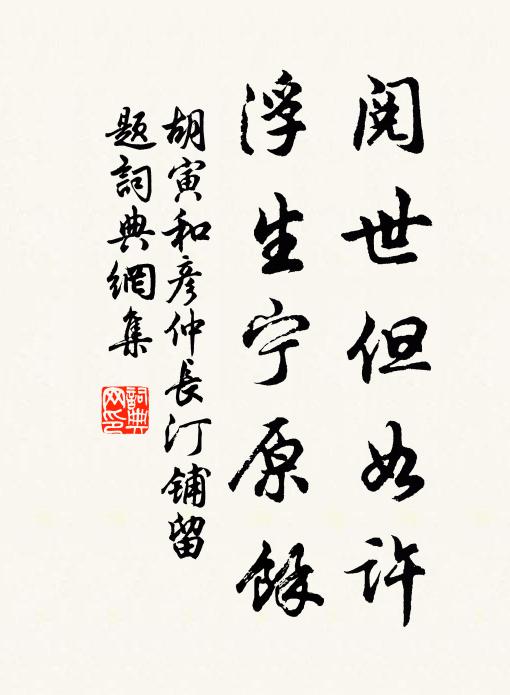 阅世但如许
浮生宁原馀
胡寅和彦仲長汀铺留
题詞典網集
詞典
网印